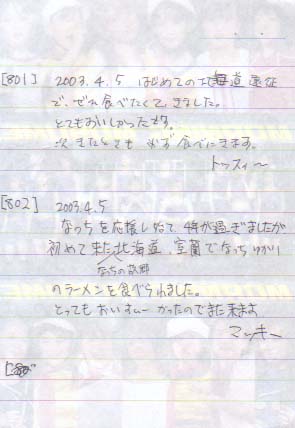 [801] 2003.4.5 はじめての北海道遠征
で、ぜひ食べたくてきました。
とてもおいしかったです。
次きたときも 必ず食べにきます。
トッスィ〜
[802] 2003.4.5
なっちを応援し始て、4年が過ぎましたが
初めて来た北海道、室蘭でなっちゆかり
なっちの故郷
のラーメンを食べられました。
とってもおいすぃーかったのでまた来ます
マッキー